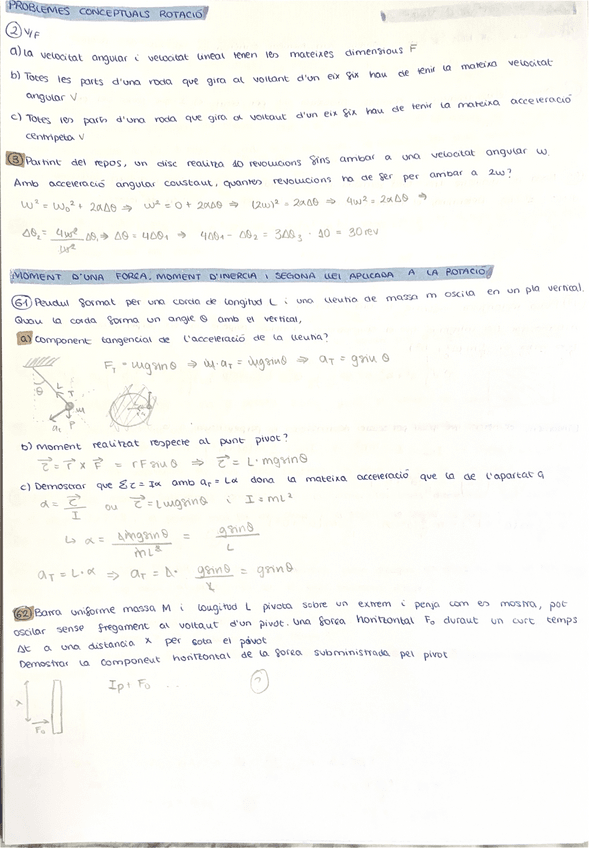 PROBLEMES CONCEPTUALS ROTACIÓ
② V/F
a) La velocitat angular i velocitat lineal tenen les mateixes dimensions F
b) Totes les parts d'una roda que gira al voltant d'un eix fix han de tenir la mateixa velocitat
angular V
c) Totes les parts d'una roda que gira al voltant d'un eix fix han de tenir la mateixa acceleració
centrípeta V
⑧ Partint del repos, un disc realitza 10 revolucions fins ambar a una velocitat angular ω.
Amb acceleració angular constant, quantes revolucions ha de fer per ambar a 2ω?
ω² = ω₀² + 2αΔθ ⇒ ω² = 0 + 2αΔθ ⇒ (2ω)² = 2αΔθ ⇒ 4ω² = 2αΔθ ⇒
Δθ₂ = 4ω²/ω² Δθ₁ ⇒ Δθ = 4Δθ₁ ⇒ 4Δθ₁ - Δθ₂ = 3Δθ₃ · 10 = 30 rev
MOMENT D'UNA FORÇA, MOMENT D'INERCIA I SEGONA LLEI APLICADA A LA ROTACIÓ
61 Pendul format per una corda de longitud L i una llentia de massa m oscila en un pla vertical.
Quan la corda forma un angle θ amb el vertical,
a) Component tangencial de l'acceleració de la llentia?
F_T = mgsinθ ⇒ m·a_T = mgsinθ ⇒ a_T = gsinθ
θ
L
T
m
a_t
P
b) Moment realitzat respecte al punt pivot?
τ⃗ = r⃗ × F⃗ = rFsinθ ⇒ τ⃗ = L·mgsinθ
c) Demostrar que Στ = Iα amb a_T = Lα dona la mateixa acceleració que la de l'apartat a
α = τ⃗/I on τ⃗ = Lmgsinθ i I = mL²
↳ α = Lmgsinθ/mL² = gsinθ/L
a_T = L·α ⇒ a_T = L· gsinθ/L = gsinθ
62 Barra uniforme massa M i longitud L pivota sobre un extrem i penja com es mostra, pot
oscilar sense fregament al voltant d'un pivot. Una força horitzontal F₀ durant un curt temps
Δt a una distancia x per sota el pivot
Demostrar la component horitzontal de la força subministrada pel pivot
Ip + F₀ ...
?
x
F₀